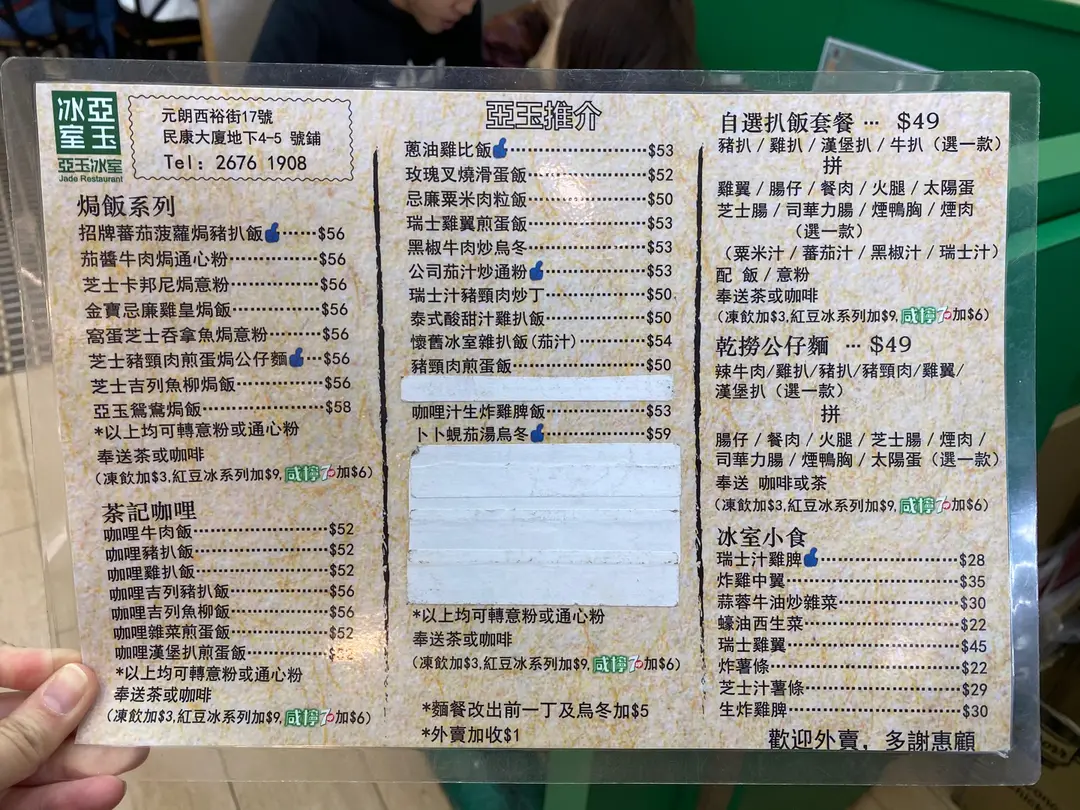 冰室 亞玉
亞玉冰室
Jade Restaurant
元朗西裕街17號
民康大廈地下4-5 號鋪
Tel: 2676 1908
焗飯系列
招牌蕃茄菠蘿焗豬扒飯······$56
茄醬牛肉焗通心粉············$56
芝士卡邦尼焗意粉············$56
金寶忌廉雞皇焗飯············$56
窩蛋芝士吞拿魚焗意粉······$56
芝士豬頸肉煎蛋焗公仔麵···$56
芝士吉列魚柳焗飯············$56
亞玉鴛鴦焗飯···············$58
*以上均可轉意粉或通心粉
奉送茶或咖啡
(凍飲加$3,紅豆冰系列加$9,咸檸7加$6)
茶記咖哩
咖哩牛肉飯···············$52
咖哩豬扒飯···············$52
咖哩雞扒飯···············$52
咖哩吉列豬扒飯············$56
咖哩吉列魚柳飯············$56
咖哩雜菜煎蛋飯············$52
咖哩漢堡扒煎蛋飯·········
*以上均可轉意粉或通心粉
奉送茶或咖啡
(凍飲加$3,紅豆冰系列加$9,咸檸7加$6)
亞玉推介
蔥油雞比飯···············$53
玫瑰叉燒滑蛋飯············$52
忌廉粟米肉粒飯············$50
瑞士雞翼煎蛋飯············$53
黑椒牛肉炒烏冬············$53
公司茄汁炒通粉············$53
瑞士汁豬頸肉炒丁·········$50
泰式酸甜汁雞扒飯·········$50
懷舊冰室雜扒飯(茄汁)······$54
豬頸肉煎蛋飯···············$50
咖哩汁生炸雞脾飯·········$53
卜卜蜆茄湯烏冬············$59
*以上均可轉意粉或通心粉
奉送茶或咖啡
(凍飲加$3,紅豆冰系列加$9,咸檸7加$6)
*麵餐改出前一丁及烏冬加$5
*外賣加收$1
自選扒飯套餐 ··· $49
豬扒 / 雞扒 / 漢堡扒 / 牛扒 (選一款)
拼
雞翼 / 腸仔 / 餐肉 / 火腿 / 太陽蛋
芝士腸 / 司華力腸 / 煙鴨胸 / 煙肉
(選一款)
(粟米汁 / 蕃茄汁 / 黑椒汁 / 瑞士汁)
配 飯 / 意粉
奉送茶或咖啡
(凍飲加$3,紅豆冰系列加$9,咸檸7加$6)
乾撈公仔麵 ··· $49
辣牛肉/雞扒/豬扒/豬頸肉/雞翼/
漢堡扒 (選一款)
拼
腸仔 / 餐肉 / 火腿 / 芝士腸 / 煙肉 /
司華力腸 / 煙鴨胸 / 太陽蛋 (選一款)
奉送 咖啡或茶
(凍飲加$3,紅豆冰系列加$9,咸檸7加$6)
冰室小食
瑞士汁雞脾···············$28
炸雞中翼···············$35
蒜蓉牛油炒雜菜············$30
蠔油西生菜···············$22
瑞士雞翼···············$45
炸薯條···············$22
芝士汁薯條···············$29
生炸雞脾···············$30
歡迎外賣，多謝惠顧